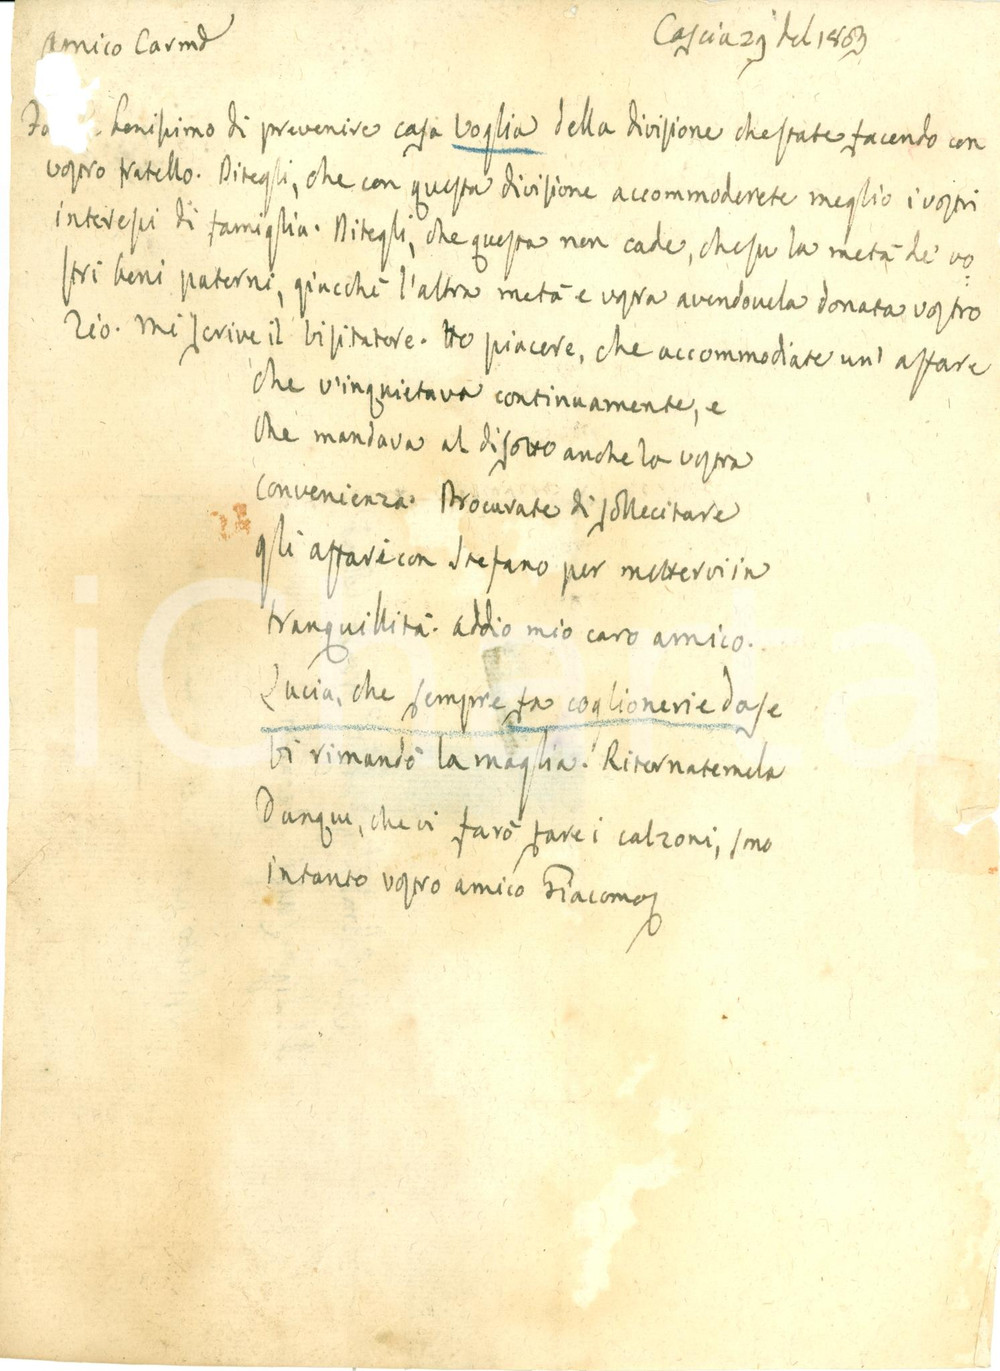 Amico Carmo Cascia 29 del 1803
Fa benissimo di prevenire casa Voglia della divisione che state facendo con
vostro fratello. Ditegli, che con questa divisione accommoderete meglio i vostri
interessi di famiglia. Ditegli, che questa non cade, che su la metà de' vo=
stri beni paterni, giacchè l'altra metà è vostra avendovela donata vostro
Zio. Mi scrive il Visitatore. Ho piacere, che accommodiate un' affare
che v'inquietava continuamente, e
che mandava al disotto anche la vostra
convenienza. Procurate di sollecitare
gli affari con Stefano per mettervi in
tranquillità. Addio mio caro amico.
Lucia, che sempre fa coglionerie da se
vi rimandò la maglia. Ritornatemela
Dunque, che vi farò fare i calzoni, sono
intanto vostro amico Giacomo